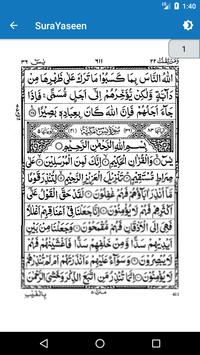 1:40
SuraYaseen
1
يٰسٓ ٣٦
٦١١
وَمَنْ يَّقْنُتْ ٢٢
اللهُ النَّاسَ بِمَا كَسَبُوْا مَا تَرَكَ عَلٰى ظَهْرِهَا مِنْ
دَآبَّةٍ وَّلٰكِنْ يُّؤَخِّرُهُمْ اِلٰٓى اَجَلٍ مُّسَمًّى ۚ فَاِذَا
جَآءَ اَجَلُهُمْ فَاِنَّ اللهَ كَانَ بِعِبَادِهٖ بَصِيْرًا
سُوْرَةُ يٰسٓ مَكِّيَّةٌ
بِسْمِ اللهِ الرَّحْمٰنِ الرَّحِيْمِ
يٰسٓ وَالْقُرْاٰنِ الْحَكِيْمِ اِنَّكَ لَمِنَ الْمُرْسَلِيْنَ عَلٰى
صِرَاطٍ مُّسْتَقِيْمٍ تَنْزِيْلَ الْعَزِيْزِ الرَّحِيْمِ لِتُنْذِرَ قَوْمًا
مَّآ اُنْذِرَ اٰبَآؤُهُمْ فَهُمْ غٰفِلُوْنَ لَقَدْ حَقَّ الْقَوْلُ عَلٰٓى
اَكْثَرِهِمْ فَهُمْ لَا يُؤْمِنُوْنَ اِنَّا جَعَلْنَا فِيْٓ اَعْنَاقِهِمْ اَغْلٰلًا
فَهِيَ اِلَى الْاَذْقَانِ فَهُمْ مُّقْمَحُوْنَ وَجَعَلْنَا مِنْۢ بَيْنِ
اَيْدِيْهِمْ سَدًّا وَّمِنْ خَلْفِهِمْ سَدًّا فَاَغْشَيْنٰهُمْ فَهُمْ
لَا يُبْصِرُوْنَ وَسَوَآءٌ عَلَيْهِمْ ءَاَنْذَرْتَهُمْ اَمْ لَمْ تُنْذِرْهُمْ
لَا يُؤْمِنُوْنَ اِنَّمَا تُنْذِرُ مَنِ اتَّبَعَ الذِّكْرَ وَخَشِيَ الرَّحْمٰنَ
بِالْغَيْبِ